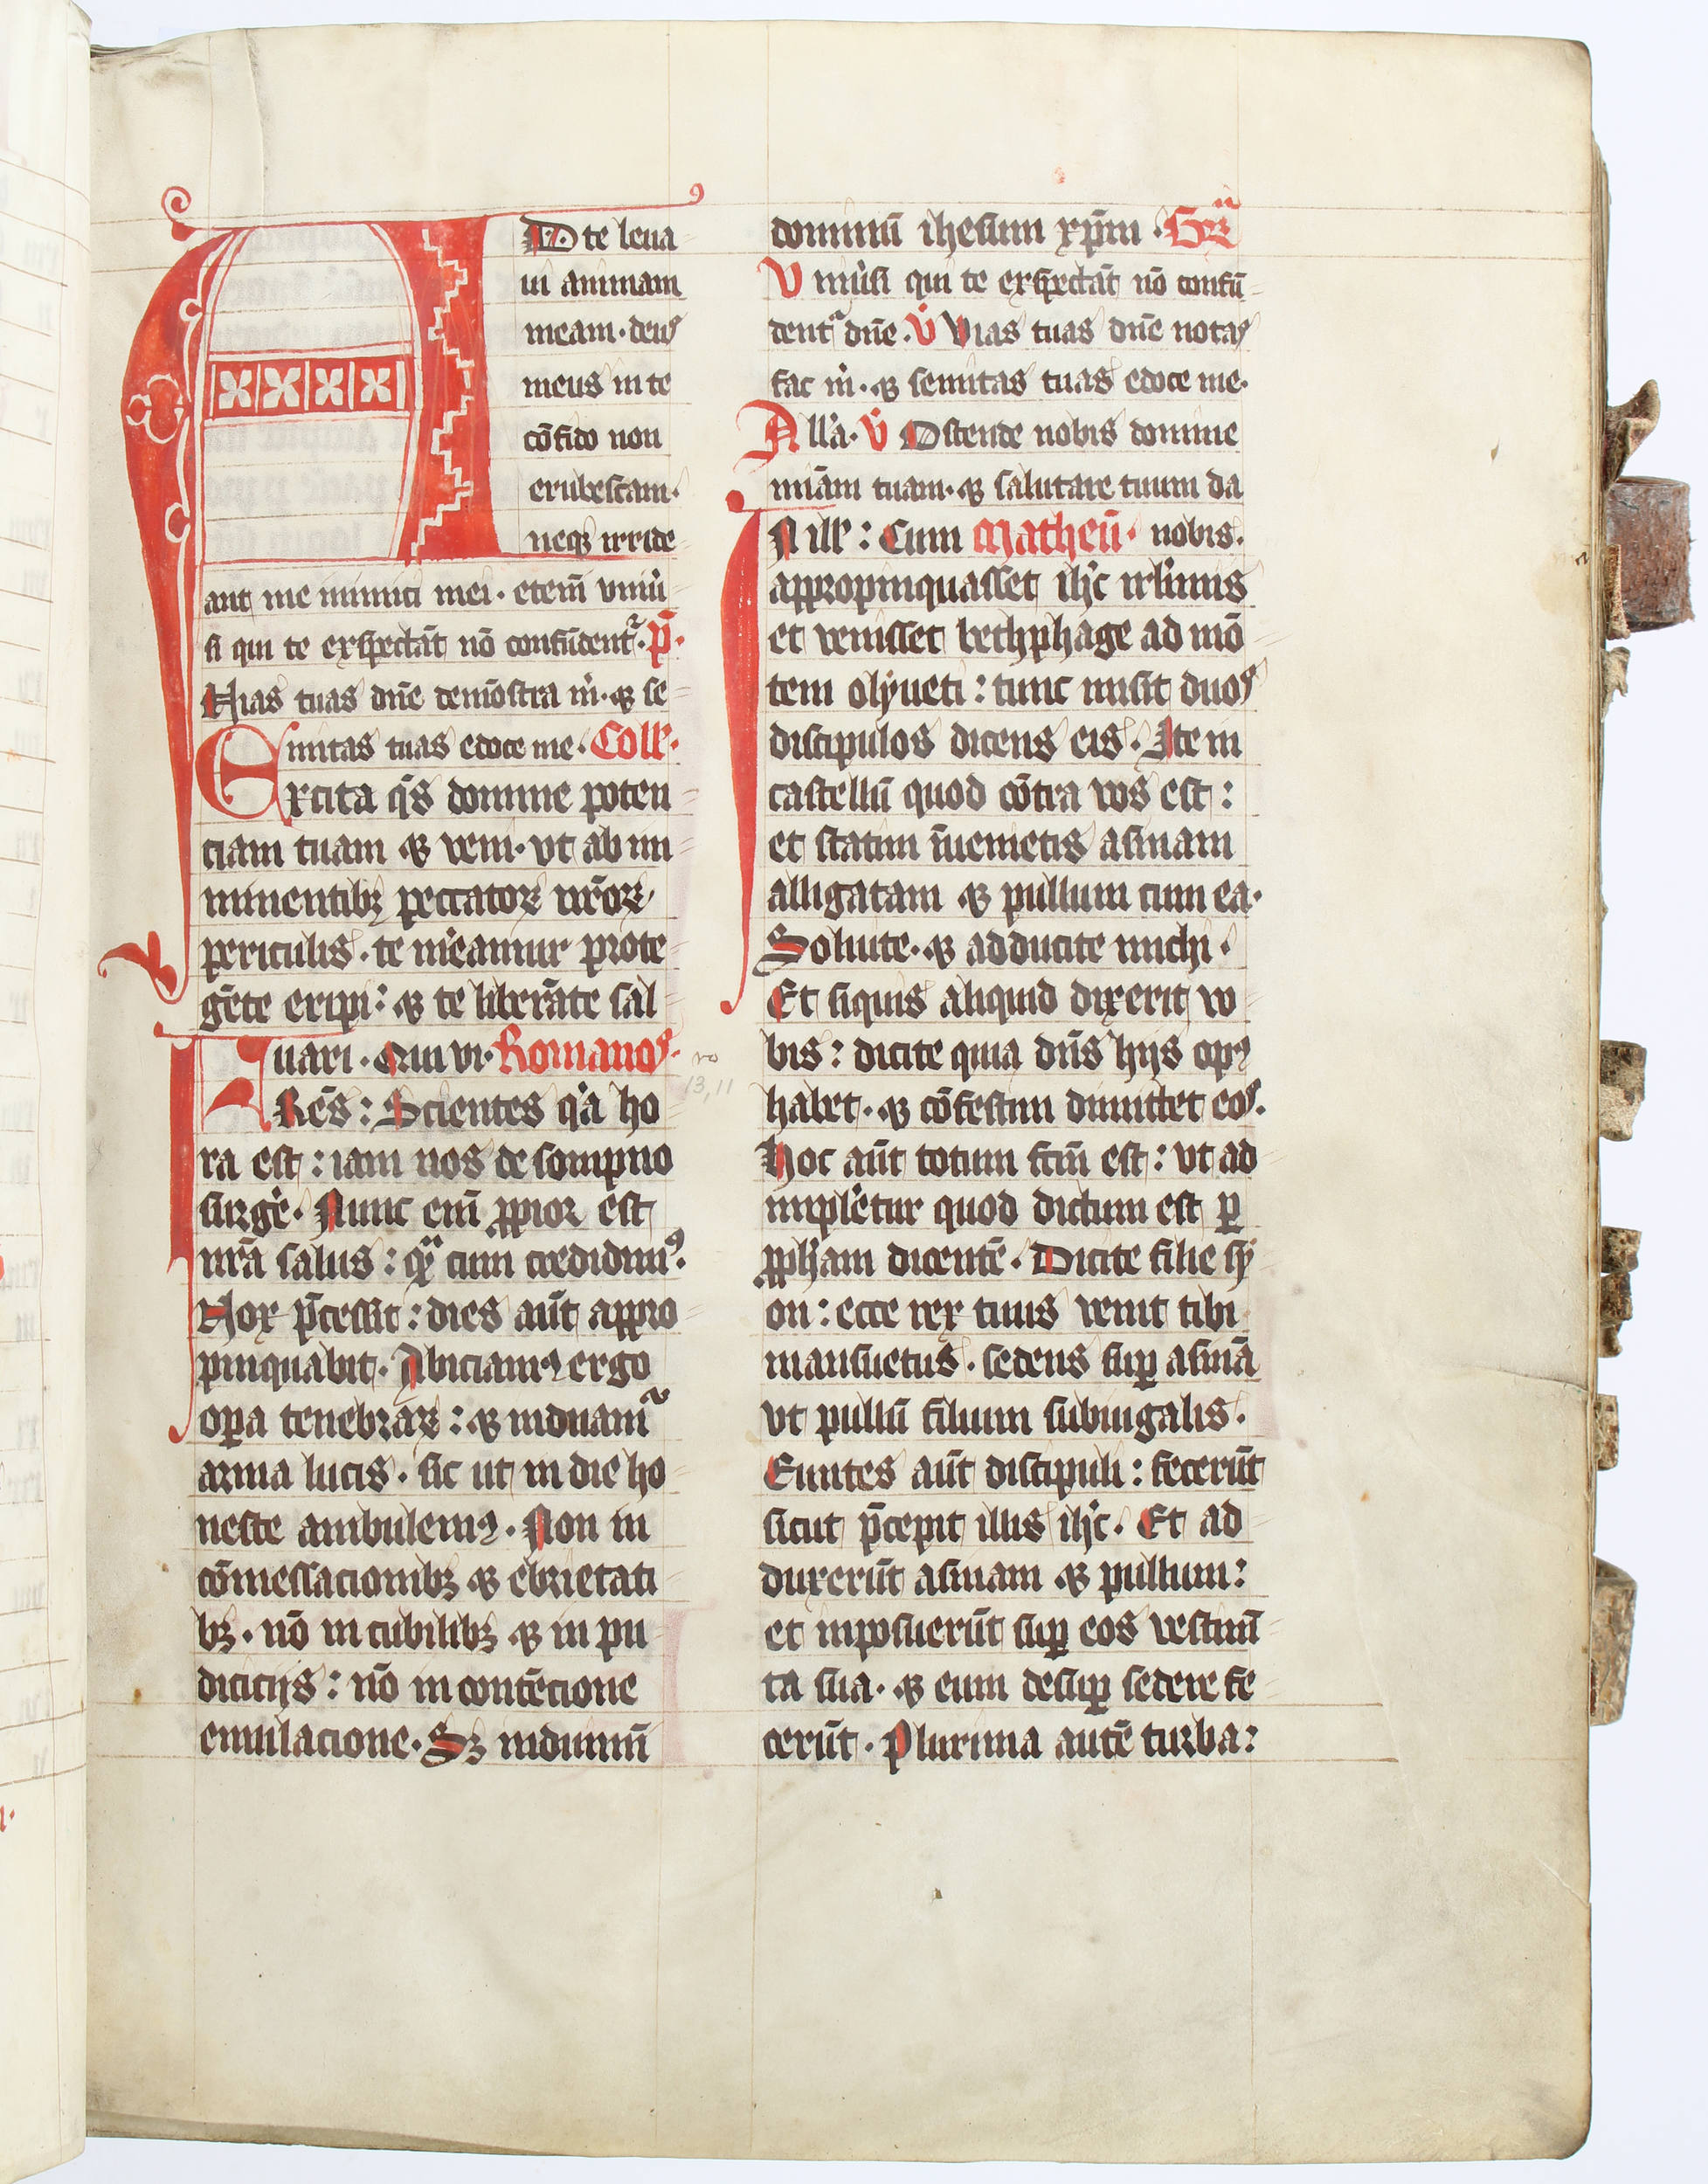 AD te leua
ui animam
meam · deus
meus in te
cōfido non
erubescam ·
neqꝫ irride
ant me inimici mei · etem̄ vniu̾
si qui te exspectāt nō confūdentᷣ · p̄ ·
Vias tuas dn̄e demōstra m̍ · ⁊ se
mitas tuas edoce me · Coll̄ ·
Excita qs̄ domine poten
ciam tuam ⁊ veni · vt ab im
minentibꝫ peccatoꝝ nr̄oꝝ
periculis · te m̾eamur prote
gēte eripi : ⁊ te liberāte sal
uari · Qui vi · Romanos ·
FRēs : Scientes q̍a ho
ra est : iam nos de sompno
surge̾ · Nunc em̄ ꝓpior est
nr̄a salus : qᷓ cum credidimꝰ ·
Nox p̄cessit : dies aūt appro
pinquabit · Abiciamꝰ ergo
oꝑa tenebraꝝ : ⁊ induamᷣ
arma lucis · sic ut in die ho
neste ambulemꝰ · Non in
cōmessacionibꝫ ⁊ ebrietati
bꝫ · nō in cubilibꝫ ⁊ in pu
dicicijs : nō in contēcione
emulacione · Sꝫ induimī
dominū ihesum xp̄m · Gᷓ
Vniu̾si qui te exspectāt nō confū
dentᷣ dn̄e · V̾ Vias tuas dn̄e notas
fac m̍ · ⁊ semitas tuas edoce me ·
All̾a · V̾ Ostende nobis domine
miām tuam · ⁊ salutare tuum da
In ill̄ : Cum Matheū · nobis ·
appropinquasset ih̾c irl̾imis
et venisset bethphage ad mō
tem olyueti : tunc misit duos
discipulos dicens eis · Ite in
castellū quod cōtra vos est :
et statim īuenietis asinam
alligatam ⁊ pullum cum ea ·
Soluite · ⁊ adducite michi ·
Et siquis aliquid dixerit vo
bis : dicite quia dn̄s hijs opꝰ
habet · ⁊ cōfestim dimittet eos ·
Hoc aūt totum fc̄m est : vt ad
imple̾tur quod dictum est ꝑ
ꝓph̾am dicentē · Dicite filie sy
on : ecce rex tuus venit tibi
mansuetus · sedens suꝑ asinā
vt pullū filium subiugalis ·
Euntes aūt discipuli : fecerūt
sicut p̄cepit illis ih̾c · Et ad
duxerūt asinam ⁊ pullum :
et inposuerūt suꝑ eos vestim̄
ta sua · ⁊ eum desuꝑ sedere fe
cerūt · Plurima autē turba :
ro
13,11